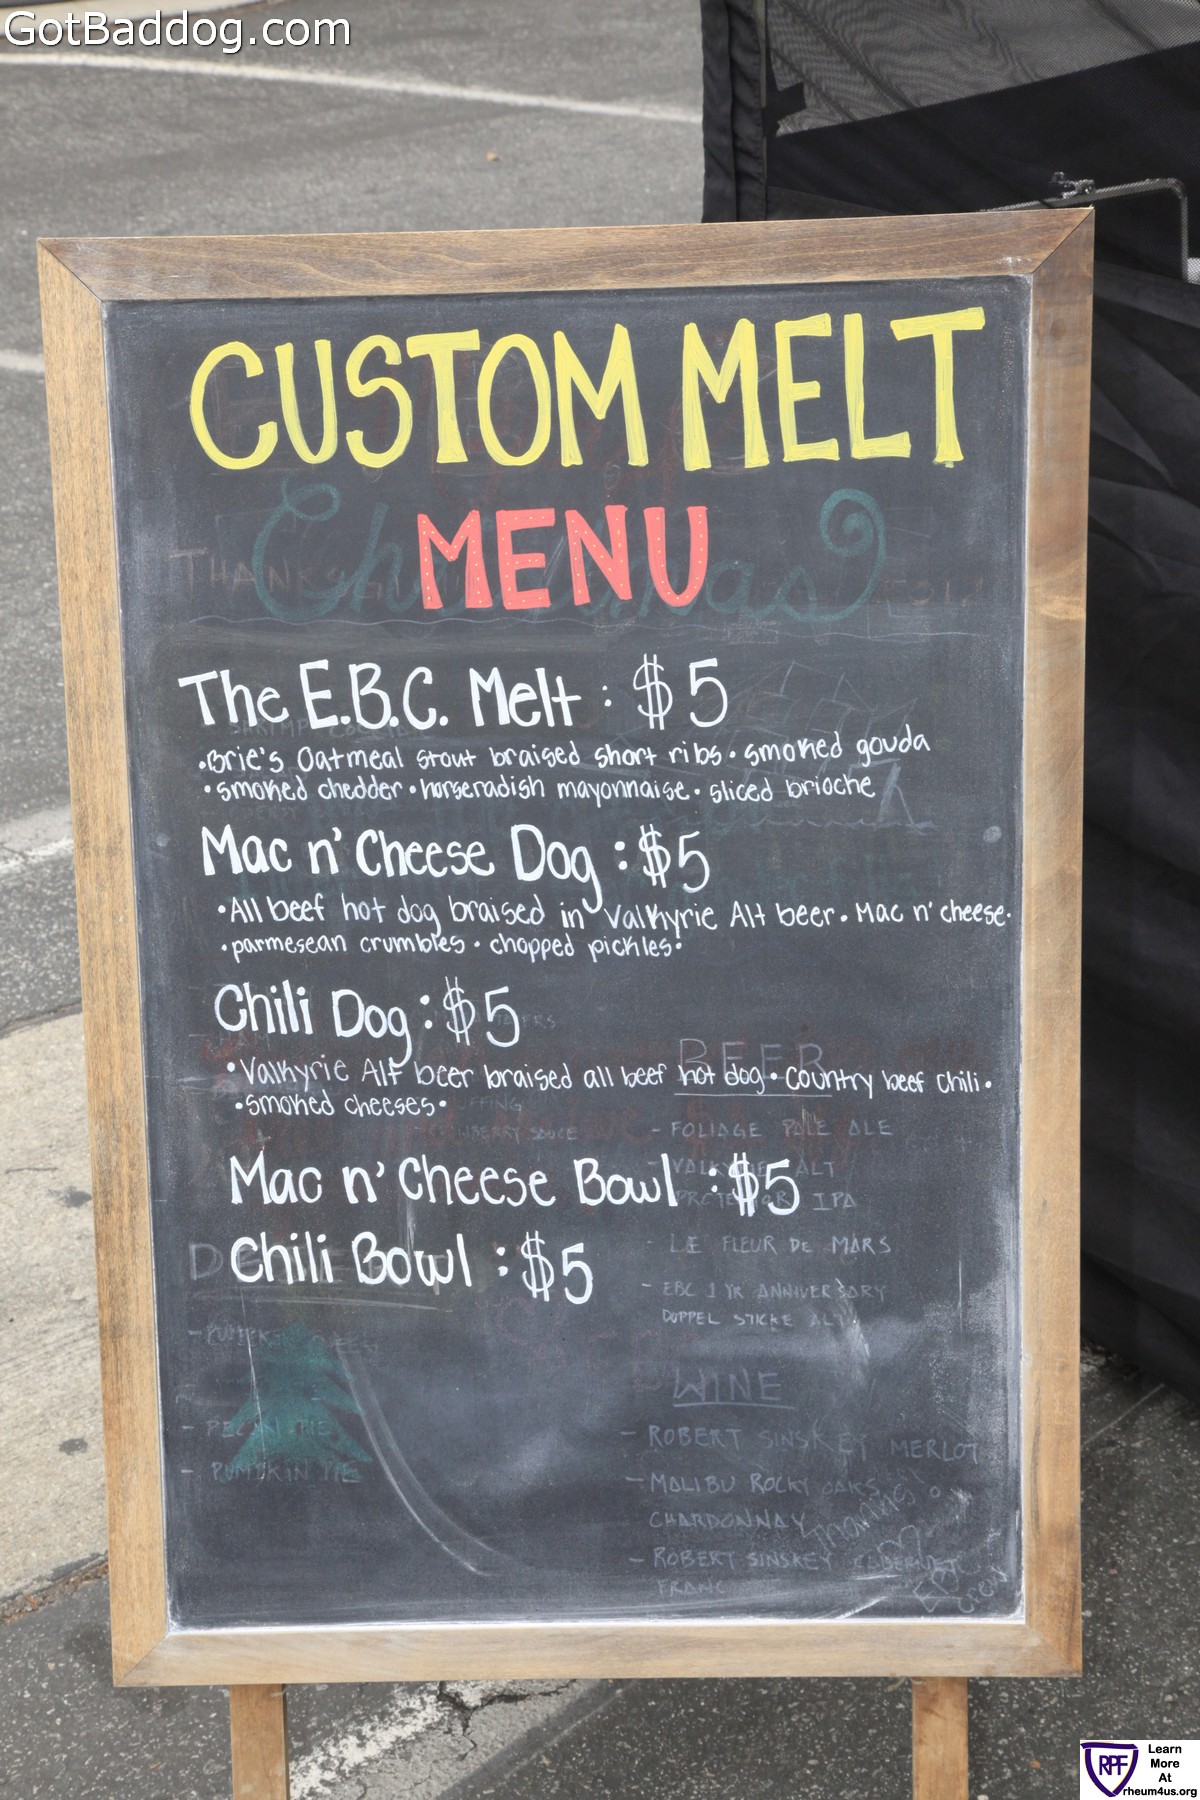 GotBaddog.com
CUSTOM MELT
MENU
Christmas
THANKSGI
The E.B.C. Melt : $5
•Brie's Oatmeal stout braised short ribs • smoked gouda
•smoked chedder • horseradish mayonnaise • sliced brioche
Mac n' Cheese Dog : $5
•All beef hot dog braised in Valkyrie Alt beer • Mac n' cheese•
•parmesean crumbles • chopped pickles•
Chili Dog : $5
BEER
•Valkyrie Alt beer braised all beef hot dog • Country beef chili •
•smoked cheeses•
- FOLIAGE PALE ALE
- VALKYRIE ALT
Mac n' Cheese Bowl : $5
IPA
- LE FLEUR DE MARS
Chili Bowl : $5
- EBC 1 YR ANNIVERSARY
DOPPEL STICKE ALT
WINE
- PECAN PIE
- ROBERT SINSKEY MERLOT
- PUMPKIN PIE
- MALIBU ROCKY OAKS
CHARDONNAY
- ROBERT SINSKEY CABERNET
FRANC
RPF
Learn
More
At
rheum4us.org